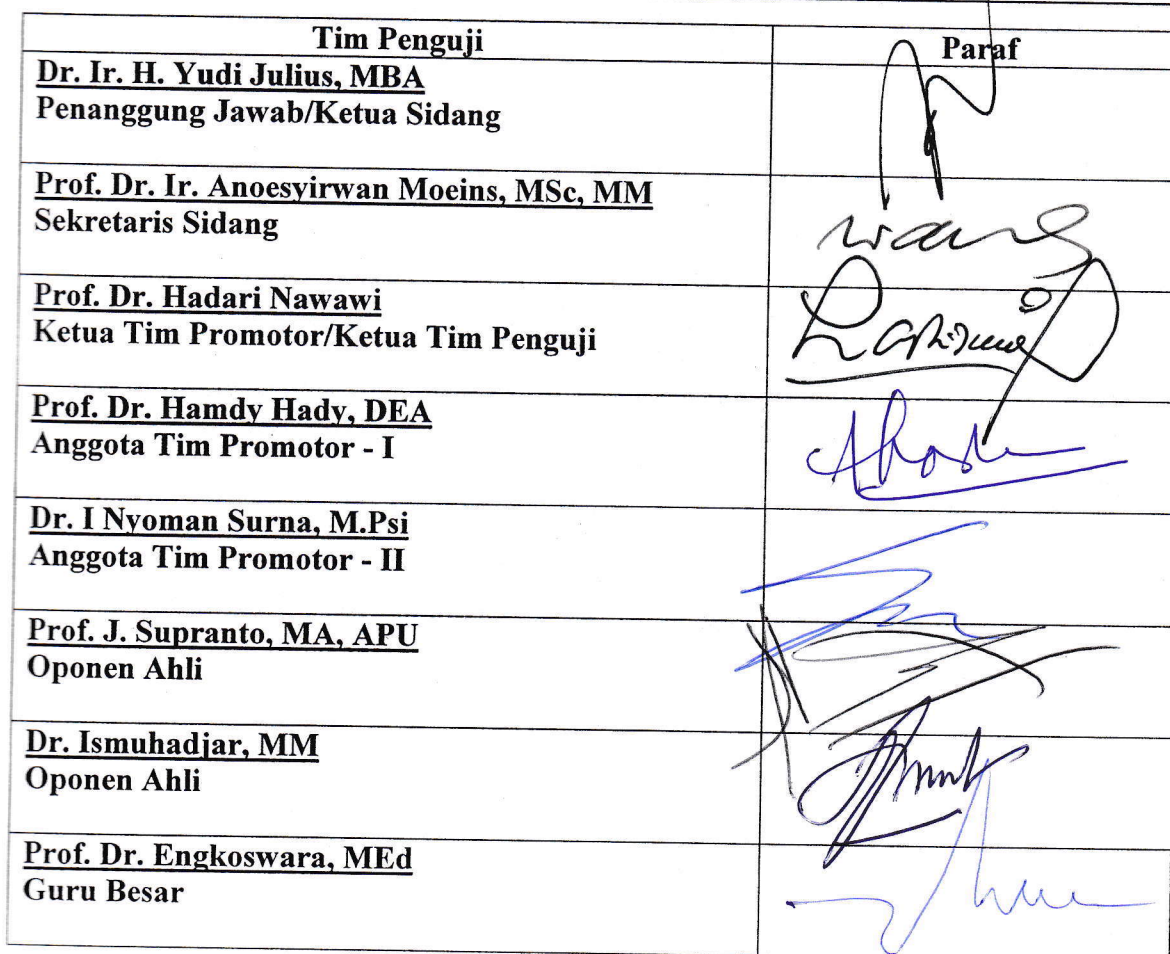 Tim Penguji
Paraf
Dr. Ir. H. Yudi Julius, MBA
Penanggung Jawab/Ketua Sidang
Prof. Dr. Ir. Anoesyirwan Moeins, MSc, MM
Sekretaris Sidang
Prof. Dr. Hadari Nawawi
Ketua Tim Promotor/Ketua Tim Penguji
Prof. Dr. Hamdy Hady, DEA
Anggota Tim Promotor - I
Dr. I Nyoman Surna, M.Psi
Anggota Tim Promotor - II
Prof. J. Supranto, MA, APU
Oponen Ahli
Dr. Ismuhadjar, MM
Oponen Ahli
Prof. Dr. Engkoswara, MEd
Guru Besar